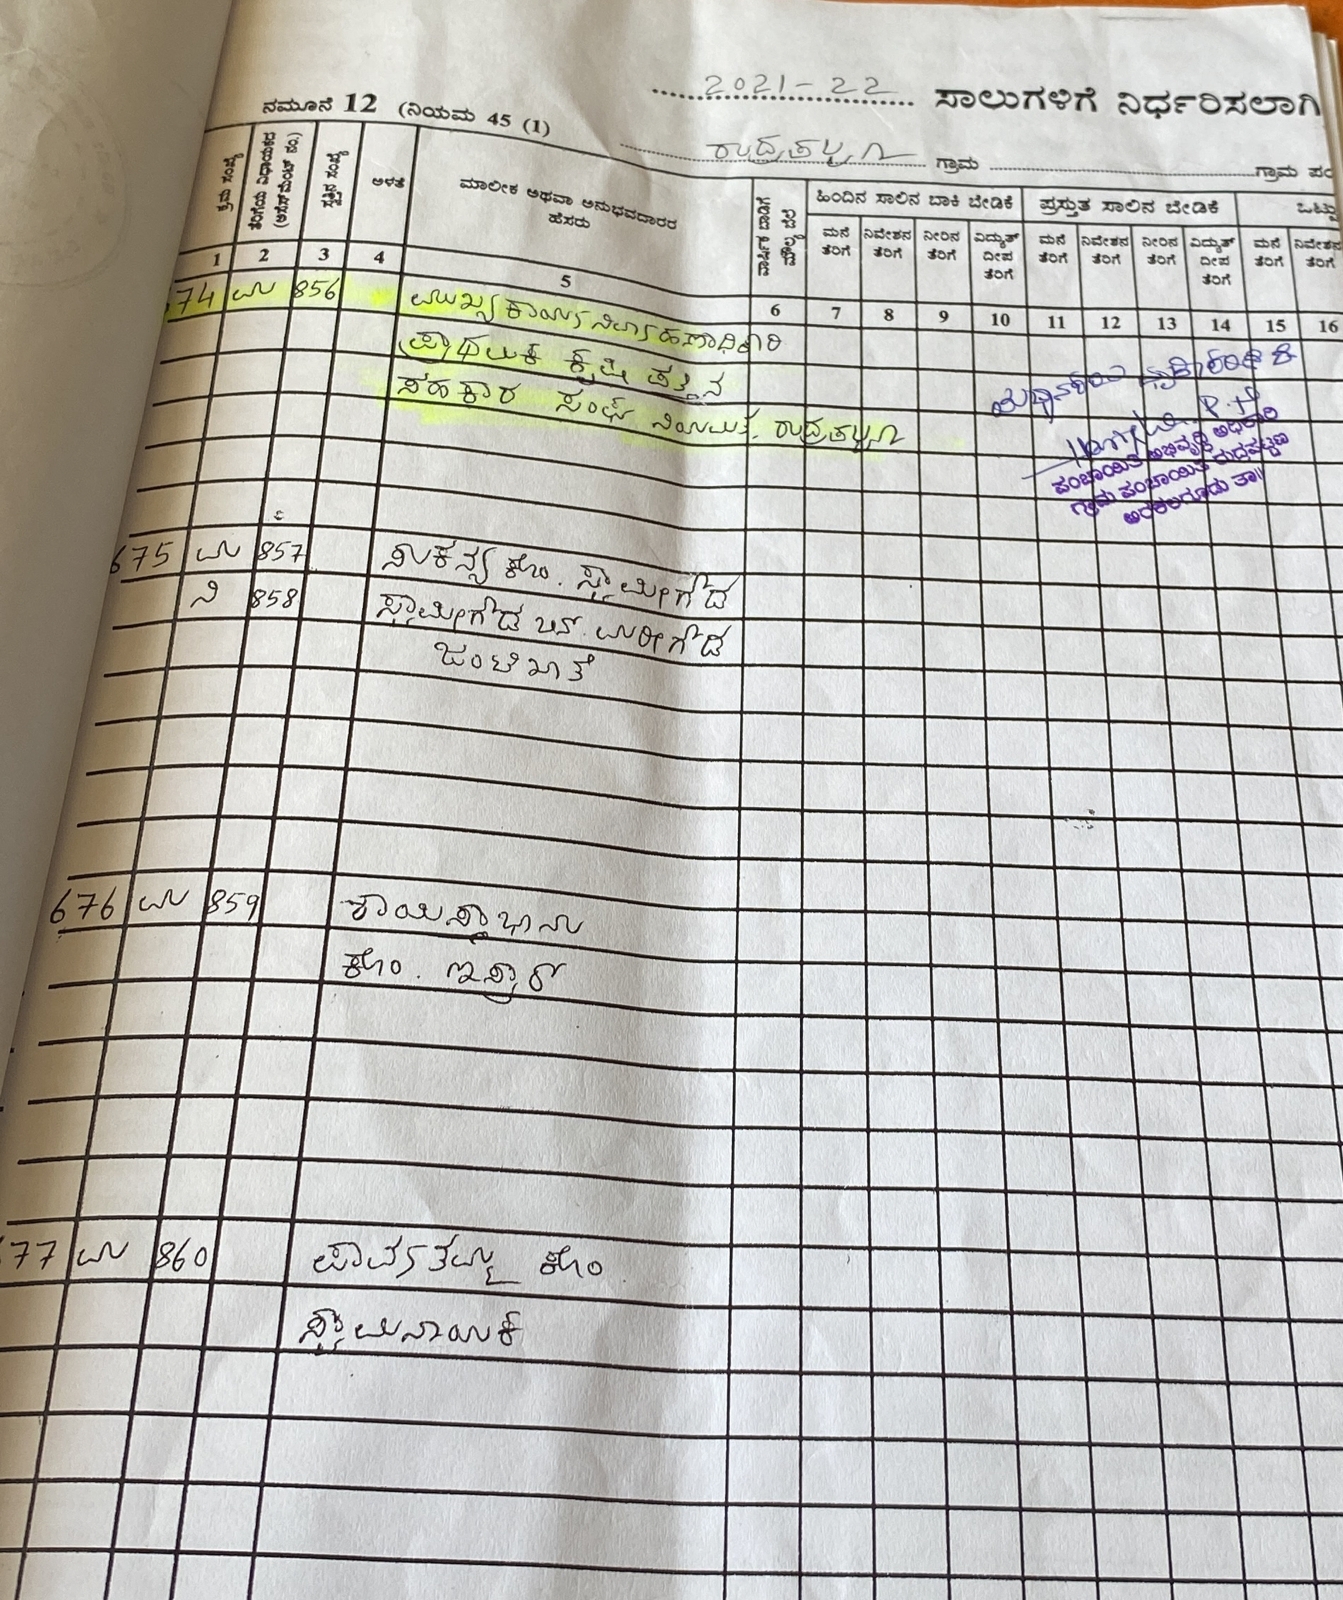 2021-22 ಸಾಲುಗಳಿಗೆ ನಿರ್ಧರಿಸಲಾಗಿ
ನಮೂನೆ 12 (ನಿಯಮ 45 (1)
ರುದ್ರಪಟ್ಟಣ ಗ್ರಾಮ ಗ್ರಾಮ ಪಂ
ಕ್ರಮ ಸಂಖ್ಯೆ
ತೆರಿಗೆಯ ವಿಧಾಯಕದ (ಅಸೆಸ್‌ಮೆಂಟ್ ನಂ.)
ಸ್ವತ್ತಿನ ಸಂಖ್ಯೆ
ಅಳತೆ
ಮಾಲೀಕ ಅಥವಾ ಅನುಭವದಾರರ
ಹೆಸರು
ಹಿಂದಿನ ಸಾಲಿನ ಬಾಕಿ ಬೇಡಿಕೆ
ಮನೆ ತೆರಿಗೆ
ನಿವೇಶನ ತೆರಿಗೆ
ನೀರಿನ ತೆರಿಗೆ
ವಿದ್ಯುತ್ ದೀಪ ತೆರಿಗೆ
ಪ್ರಸ್ತುತ ಸಾಲಿನ ಬೇಡಿಕೆ
ಮನೆ ತೆರಿಗೆ
ನಿವೇಶನ ತೆರಿಗೆ
ನೀರಿನ ತೆರಿಗೆ
ವಿದ್ಯುತ್ ದೀಪ ತೆರಿಗೆ
ಒಟ್ಟು
ಮನೆ ತೆರಿಗೆ
ನಿವೇಶನ ತೆರಿಗೆ
1 2 3 4 5 6 7 8 9 10 11 12 13 14 15 16
674 ಮ 856 ಮುಖ್ಯ ಕಾರ್ಯನಿರ್ವಹಣಾಧಿಕಾರಿ
ಪ್ರಾಥಮಿಕ ಕೃಷಿ ಪತ್ತಿನ
ಸಹಕಾರ ಸಂಘ ನಿಯಮಿತ. ರುದ್ರಪಟ್ಟಣ
ಪಂಚಾಯಿತಿ ಅಭಿವೃದ್ಧಿ ಅಧಿಕಾರಿ
ಗ್ರಾಮ ಪಂಚಾಯಿತಿ ರುದ್ರಪಟ್ಟಣ
ಅರಕಲಗೂಡು ತಾ||
675 ಮ 857 ಸುಕನ್ಯ ಕೋಂ. ಸ್ವಾಮೀಗೌಡ
ನಿ 858 ಸ್ವಾಮೀಗೌಡ ಬಿನ್. ಮರೀಗೌಡ
ಜಂಟಿ ಖಾತೆ
676 ಮ 859 ಕಾಯಿಸ್ತಾಭಾನು
ಕೋಂ. ಇಸ್ರಾರ್
77 ಮ 860 ಪಾರ್ವತಮ್ಮ ಕೋಂ
ಸ್ವಾಮಿನಾಯಕ